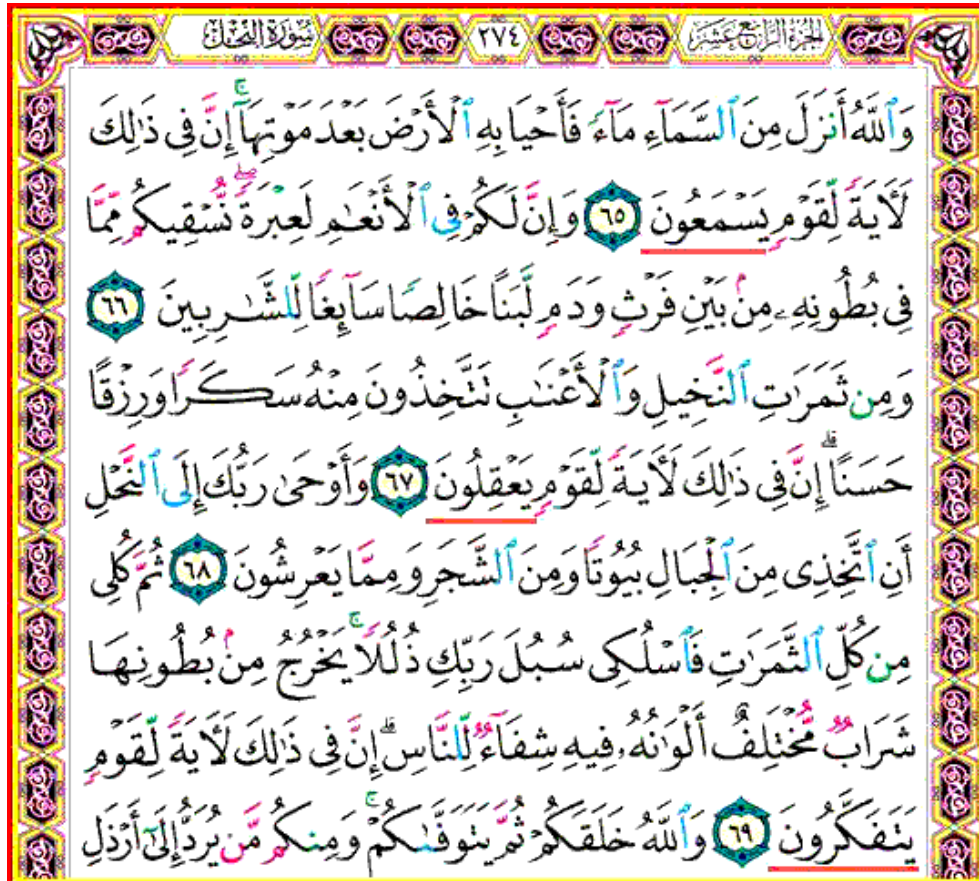 سُورَةُ النَّحْلِ ٢٧٤ الجُزْءُ الرَّابِعَ عَشَرَ
وَٱللَّهُ أَنزَلَ مِنَ ٱلسَّمَآءِ مَآءً فَأَحْيَا بِهِ ٱلْأَرْضَ بَعْدَ مَوْتِهَآ ۚ إِنَّ فِى ذَٰلِكَ
لَـَٔايَةً لِّقَوْمٍ يَسْمَعُونَ ٦٥ وَإِنَّ لَكُمْ فِى ٱلْأَنْعَـٰمِ لَعِبْرَةً ۖ نُّسْقِيكُم مِّمَّا
فِى بُطُونِهِۦ مِنۢ بَيْنِ فَرْثٍ وَدَمٍ لَّبَنًا خَالِصًا سَآئِغًا لِّلشَّـٰرِبِينَ ٦٦
وَمِن ثَمَرَٰتِ ٱلنَّخِيلِ وَٱلْأَعْنَـٰبِ تَتَّخِذُونَ مِنْهُ سَكَرًا وَرِزْقًا
حَسَنًا ۗ إِنَّ فِى ذَٰلِكَ لَـَٔايَةً لِّقَوْمٍ يَعْقِلُونَ ٦٧ وَأَوْحَىٰ رَبُّكَ إِلَى ٱلنَّحْلِ
أَنِ ٱتَّخِذِى مِنَ ٱلْجِبَالِ بُيُوتًا وَمِنَ ٱلشَّجَرِ وَمِمَّا يَعْرِشُونَ ٦٨ ثُمَّ كُلِى
مِن كُلِّ ٱلثَّمَرَٰتِ فَٱسْلُكِى سُبُلَ رَبِّكِ ذُلُلًا ۚ يَخْرُجُ مِنۢ بُطُونِهَا
شَرَابٌ مُّخْتَلِفٌ أَلْوَٰنُهُۥ فِيهِ شِفَآءٌ لِّلنَّاسِ ۗ إِنَّ فِى ذَٰلِكَ لَـَٔايَةً لِّقَوْمٍ
يَتَفَكَّرُونَ ٦٩ وَٱللَّهُ خَلَقَكُمْ ثُمَّ يَتَوَفَّىٰكُمْ ۚ وَمِنكُم مَّن يُرَدُّ إِلَىٰٓ أَرْذَلِ